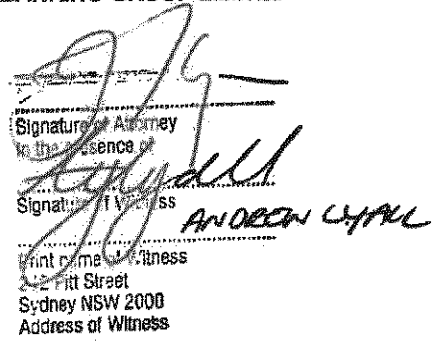 Signature of Attorney
in the presence of
Signature of Witness
ANDREW LYALL
Print name of Witness
Pitt Street
Sydney NSW 2000
Address of Witness